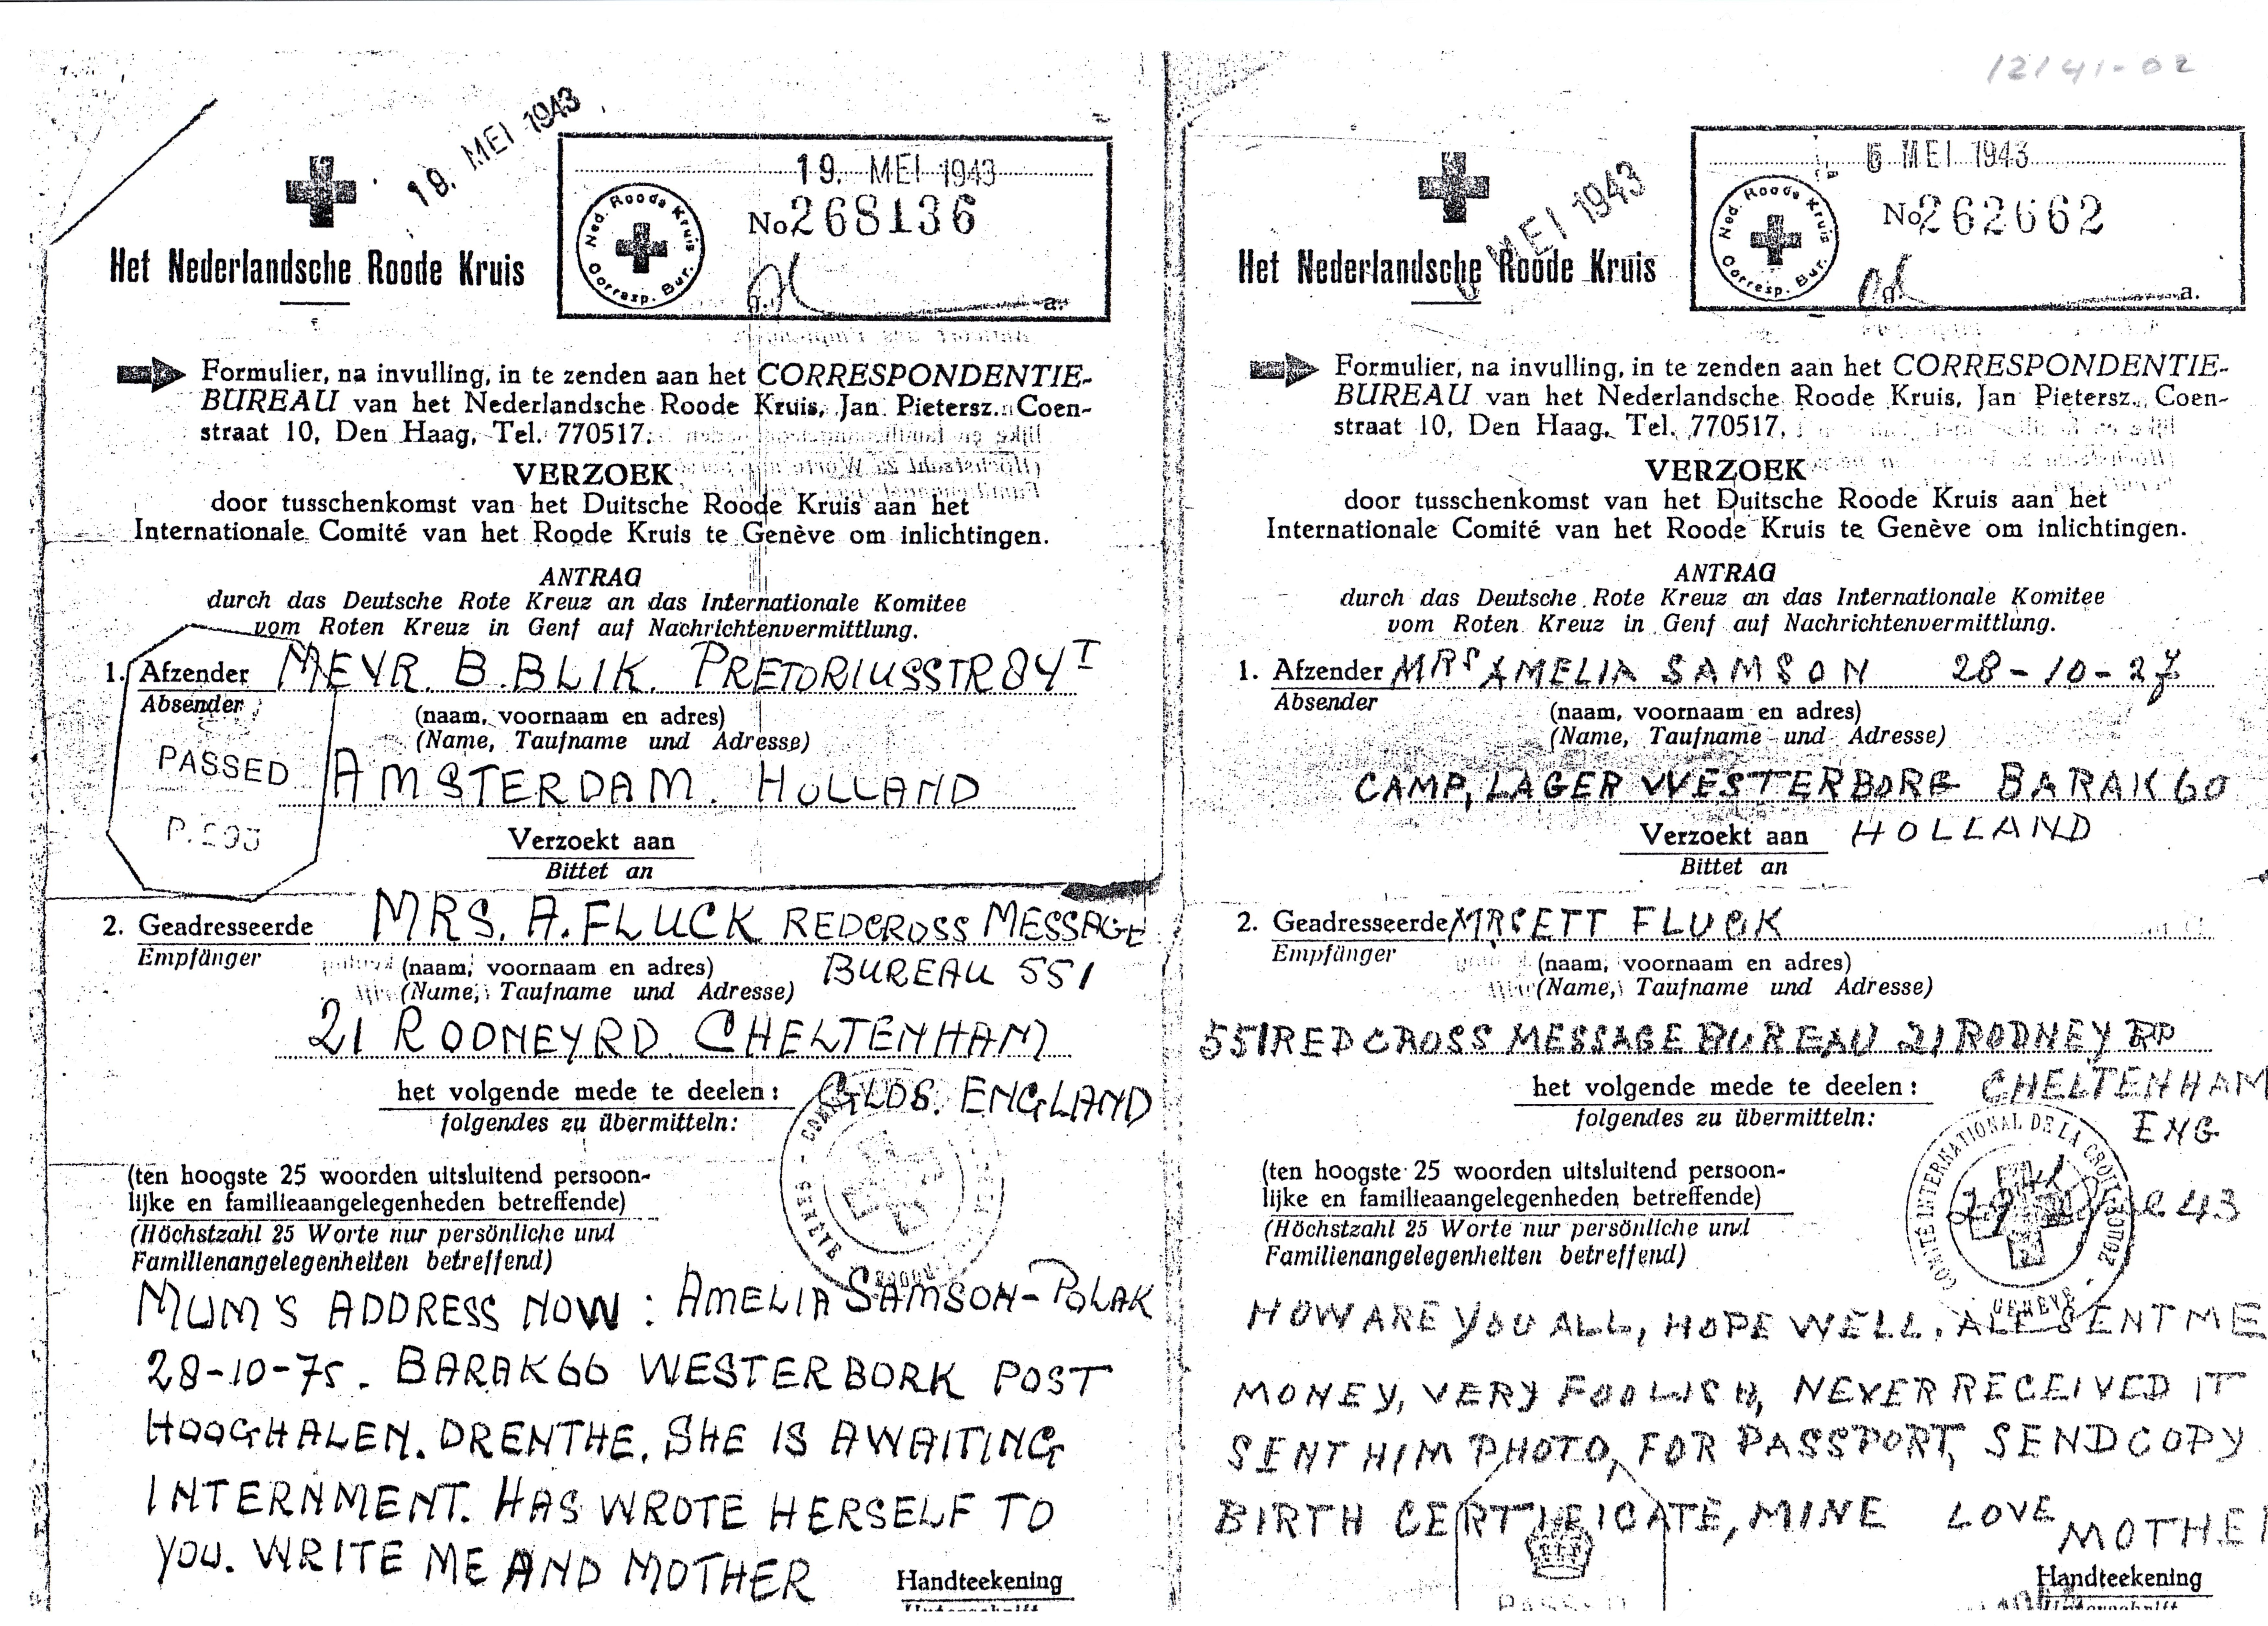 19. MEI 1943
19. MEI 1943
Ned. Roode Kruis
Corresp. Bur.
No 268136
g. a.
Het Nederlandsche Roode Kruis
Formulier, na invulling, in te zenden aan het CORRESPONDENTIE-
BUREAU van het Nederlandsche Roode Kruis, Jan Pietersz. Coen-
straat 10, Den Haag, Tel. 770517.
VERZOEK
door tusschenkomst van het Duitsche Roode Kruis aan het
Internationale Comité van het Roode Kruis te Genève om inlichtingen.
ANTRAG
durch das Deutsche Rote Kreuz an das Internationale Komitee
vom Roten Kreuz in Genf auf Nachrichtenvermittlung.
1. Afzender MEVR. B. BLIK. PRETORIUSSTR 84 I
Absender
(naam, voornaam en adres)
(Name, Taufname und Adresse)
PASSED
AMSTERDAM. HOLLAND
Verzoekt aan
Bittet an
2. Geadresseerde MRS. A. FLUCK REDCROSS MESSAGE
Empfänger
(naam, voornaam en adres) BUREAU 551
(Name, Taufname und Adresse)
21 RODNEY RD CHELTENHAM
het volgende mede te deelen: GLOS. ENGLAND
folgendes zu übermitteln:
(ten hoogste 25 woorden uitsluitend persoon-
lijke en familieaangelegenheden betreffende)
(Höchstzahl 25 Worte nur persönliche und
Familienangelegenheiten betreffend)
MUM'S ADDRESS NOW: AMELIA SAMSON-POLAK
28-10-75. BARAK 60 WESTERBORK POST
HOOGHALEN. DRENTHE. SHE IS AWAITING
INTERNMENT. HAS WROTE HERSELF TO
YOU. WRITE ME AND MOTHER
Handteekening
Unterschrift
12141-02
MEI 1943
6 MEI 1943
Ned. Roode Kruis
Corresp. Bur.
No 262662
g. a.
Het Nederlandsche Roode Kruis
Formulier, na invulling, in te zenden aan het CORRESPONDENTIE-
BUREAU van het Nederlandsche Roode Kruis, Jan Pietersz. Coen-
straat 10, Den Haag, Tel. 770517.
VERZOEK
door tusschenkomst van het Duitsche Roode Kruis aan het
Internationale Comité van het Roode Kruis te Genève om inlichtingen.
ANTRAG
durch das Deutsche Rote Kreuz an das Internationale Komitee
vom Roten Kreuz in Genf auf Nachrichtenvermittlung.
1. Afzender MRS AMELIA SAMSON 28-10-27
Absender
(naam, voornaam en adres)
(Name, Taufname und Adresse)
CAMP, LAGER WESTERBORG BARAK 60
Verzoekt aan HOLLAND
Bittet an
2. Geadresseerde FLUCK
Empfänger
(naam, voornaam en adres)
(Name, Taufname und Adresse)
551 RED CROSS MESSAGE BUREAU 21 RODNEY RD
het volgende mede te deelen: CHELTENHAM
folgendes zu übermitteln: ENG
COMITÉ INTERNATIONAL DE LA CROIX-ROUGE - GENÈVE
(ten hoogste 25 woorden uitsluitend persoon-
lijke en familieaangelegenheden betreffende)
(Höchstzahl 25 Worte nur persönliche und
Familienangelegenheiten betreffend)
HOW ARE YOU ALL, HOPE WELL. ALF SENT ME
MONEY, VERY FOOLISH, NEVER RECEIVED IT
SENT HIM PHOTO, FOR PASSPORT, SEND COPY
BIRTH CERTIFICATE, MINE LOVE MOTHER
PASSED
Handteekening
Unterschrift